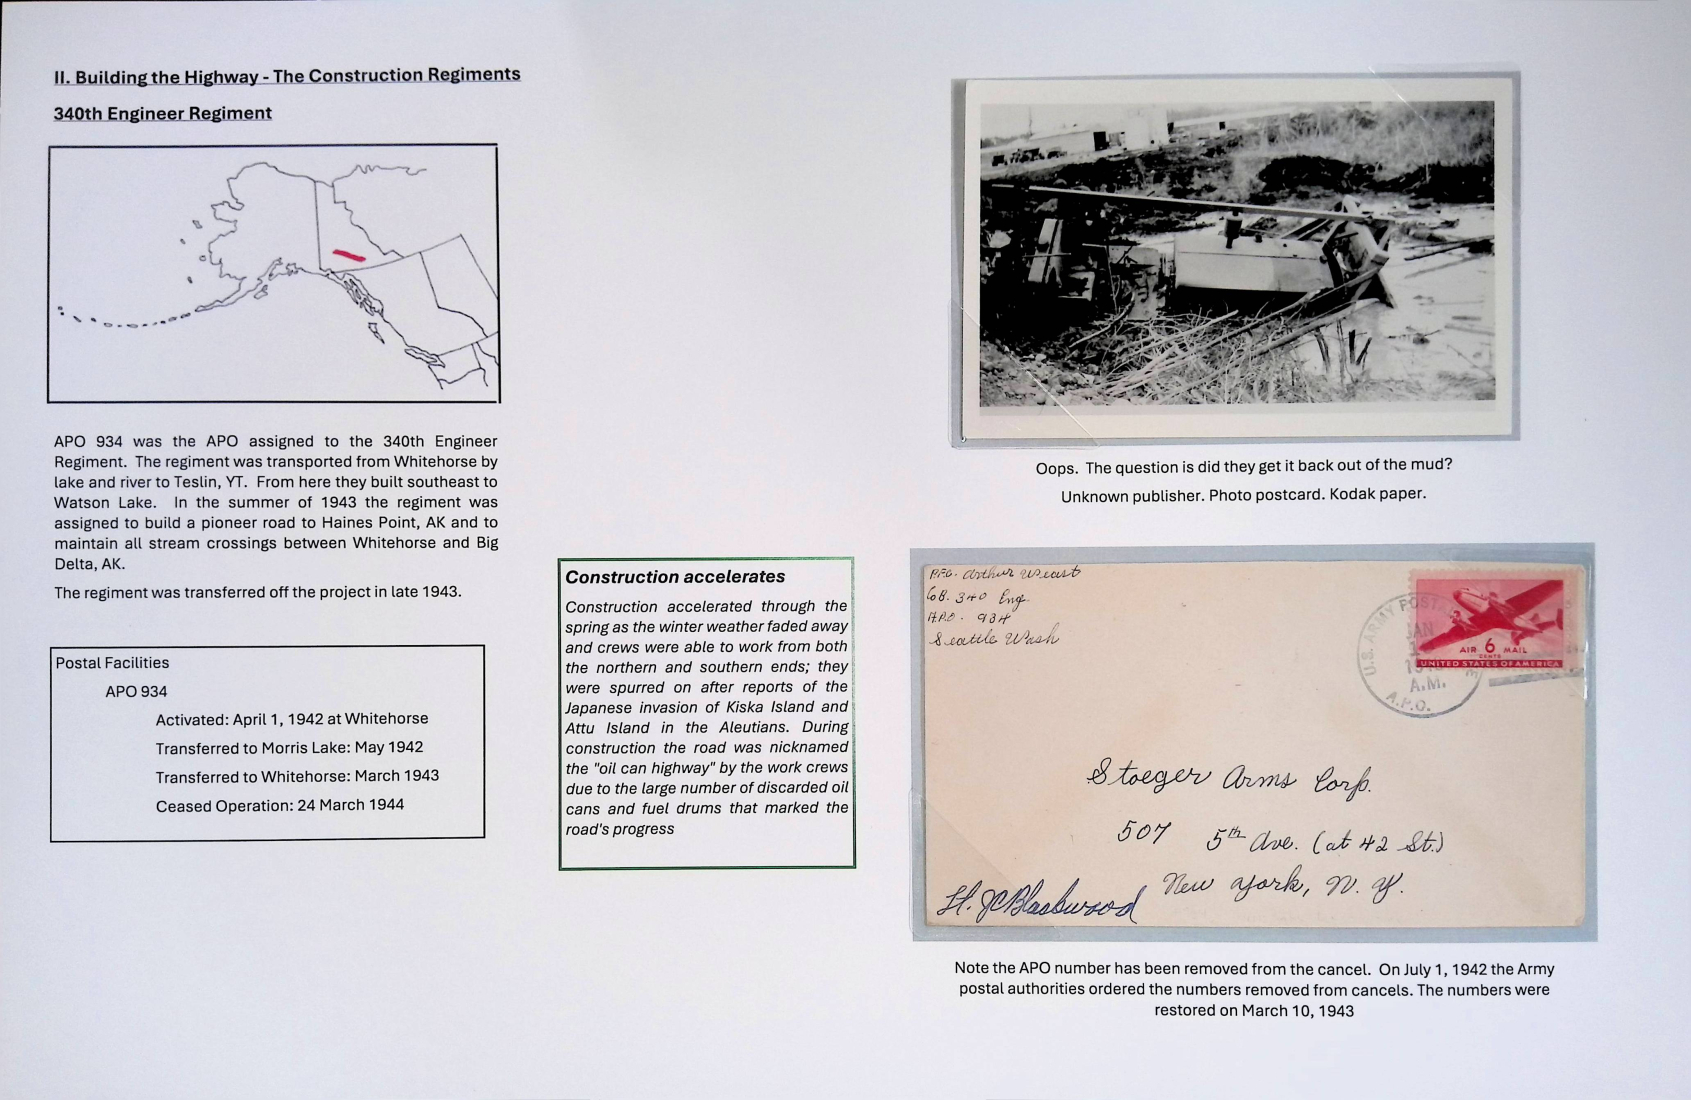 II. Building the Highway - The Construction Regiments
340th Engineer Regiment
APO 934 was the APO assigned to the 340th Engineer
Regiment. The regiment was transported from Whitehorse by
lake and river to Teslin, YT. From here they built southeast to
Watson Lake. In the summer of 1943 the regiment was
assigned to build a pioneer road to Haines Point, AK and to
maintain all stream crossings between Whitehorse and Big
Delta, AK.
The regiment was transferred off the project in late 1943.
Postal Facilities
APO 934
Activated: April 1, 1942 at Whitehorse
Transferred to Morris Lake: May 1942
Transferred to Whitehorse: March 1943
Ceased Operation: 24 March 1944
Construction accelerates
Construction accelerated through the
spring as the winter weather faded away
and crews were able to work from both
the northern and southern ends; they
were spurred on after reports of the
Japanese invasion of Kiska Island and
Attu Island in the Aleutians. During
construction the road was nicknamed
the "oil can highway" by the work crews
due to the large number of discarded oil
cans and fuel drums that marked the
road's progress
Oops. The question is did they get it back out of the mud?
Unknown publisher. Photo postcard. Kodak paper.
PFC. Arthur
Co B. 340 Eng.
A.P.O. 934
Seattle Wash
U.S. ARMY POSTAL
JAN
A.M.
A.P.O.
AIR 6 MAIL
CENTS
UNITED STATES OF AMERICA
Stoeger Arms Corp.
507 5th Ave. (at 42 St.)
New York, N. Y.
Lt. JC Blackwood
Note the APO number has been removed from the cancel. On July 1, 1942 the Army
postal authorities ordered the numbers removed from cancels. The numbers were
restored on March 10, 1943